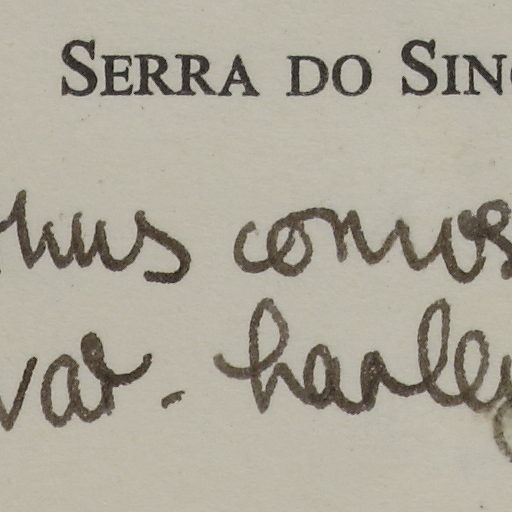 SERRA DO SIN
hus comos
var. harley